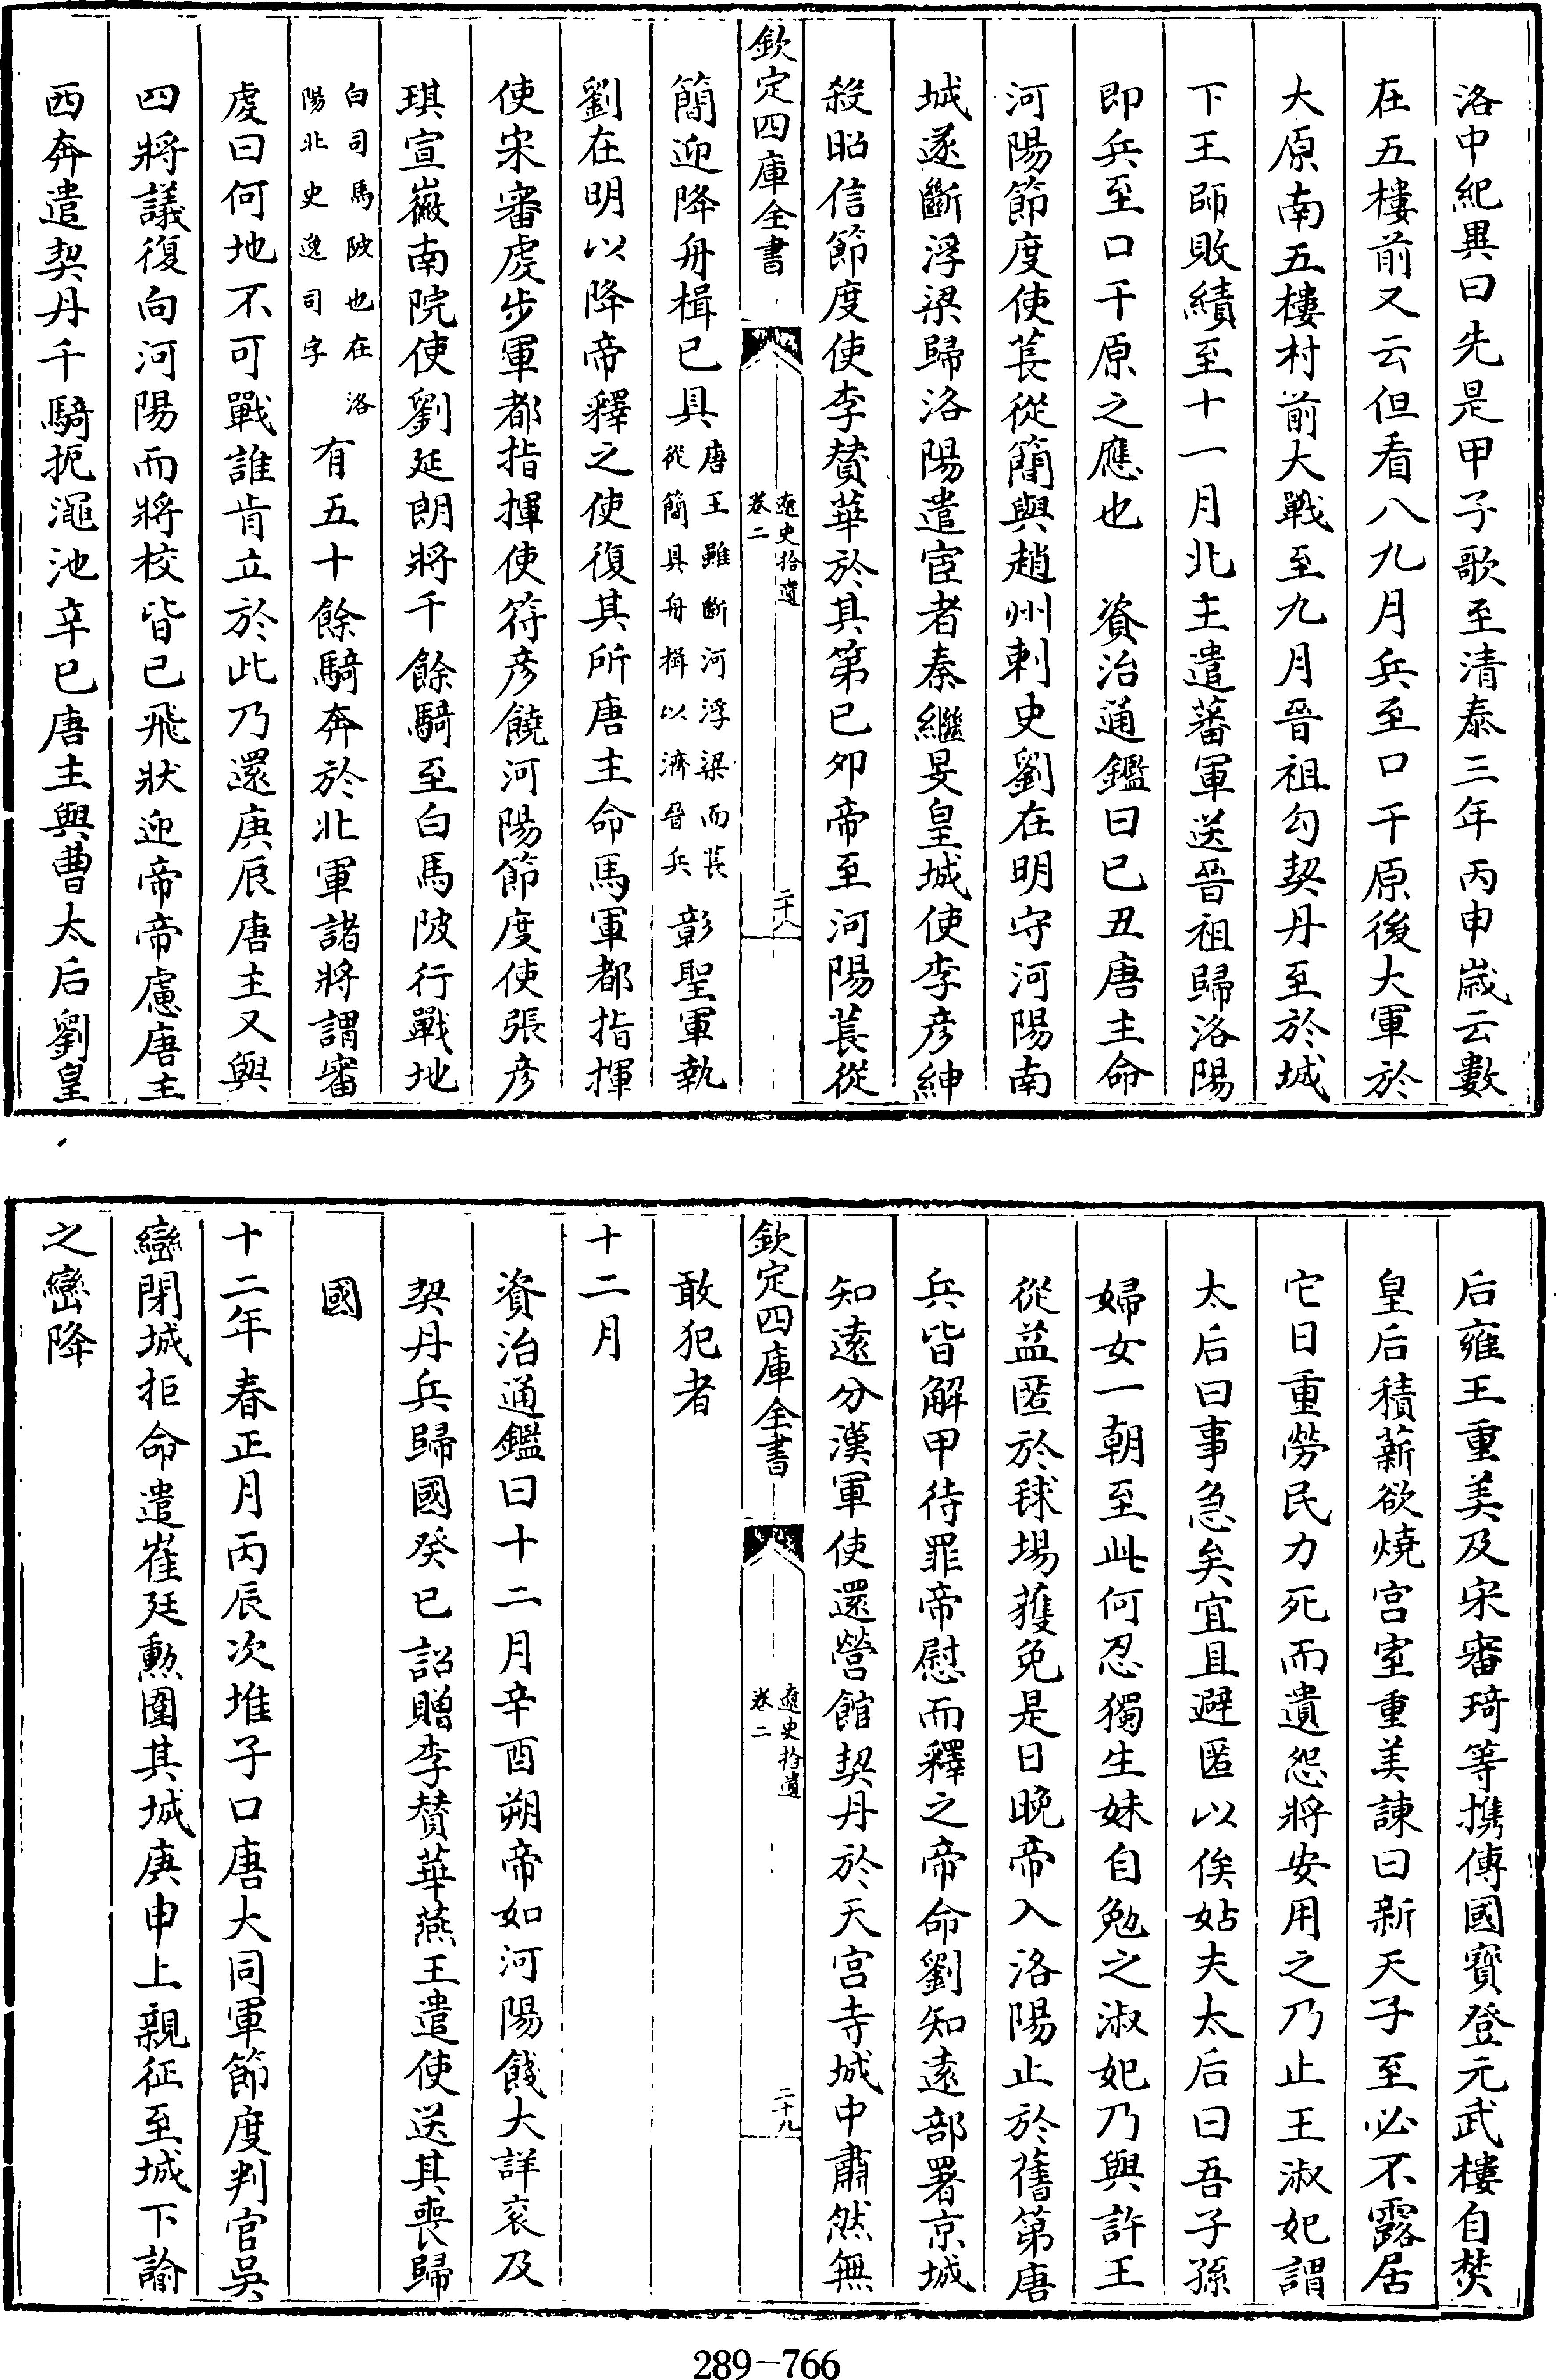 洛中紀異曰先是甲子歌至清泰三年丙申嵗云數
在五樓前又云但看八九月兵至口千原後大軍於
大原南五樓村前大戰至九月晉祖勾契丹至於城
下王師敗績至十一月北主遣蕃軍送晉祖歸洛陽
即兵至口千原之應也　資治通鑑曰己丑唐主命
河陽節度使萇從簡與趙州刺史劉在明守河陽南
城遂斷浮梁歸洛陽遣宦者秦繼旻皇城使李彥紳
殺昭信節度使李賛華於其第己夘帝至河陽萇從
欽定四庫全書
遼史拾遺
卷二
二十八
簡迎降舟楫已具唐王雖斷河浮梁而萇從簡具舟楫以濟晉兵彰聖軍執
劉在明以降帝釋之使復其所唐主命馬軍都指揮
使宋審虔步軍都指揮使符彥饒河陽節度使張彥
琪宣徽南院使劉延朗將千餘騎至白馬陂行戰地
白司馬陂也在洛陽北史逸司字有五十餘騎奔於北軍諸將謂審
虔曰何地不可戰誰肯立於此乃還庚辰唐主又與
四將議復向河陽而將校皆已飛狀迎帝帝慮唐主
西奔遣契丹千騎扼澠池辛巳唐主與曹太后劉皇
后雍王重美及宋審琦等携傳國寶登元武樓自焚
皇后積薪欲燒宫室重美諫曰新天子至必不露居
它日重勞民力死而遺怨將安用之乃止王淑妃謂
太后曰事急矣宜且避匿以俟姑夫太后曰吾子孫
婦女一朝至此何忍獨生妹自勉之淑妃乃與許王
從益匿於毬場獲免是日晚帝入洛陽止於舊第唐
兵皆解甲待罪帝慰而釋之帝命劉知遠部署京城
知遠分漢軍使還營館契丹於天宫寺城中肅然無
欽定四庫全書
遼史拾遺
卷二
二十九
敢犯者
十二月
資治通鑑曰十二月辛酉朔帝如河陽餞大詳衮及
契丹兵歸國癸巳詔贈李賛華燕王遣使送其喪歸
國
十二年春正月丙辰次堆子口唐大同軍節度判官吳
巒閉城拒命遣崔廷勲圍其城庚申上親征至城下諭
之巒降
289-766